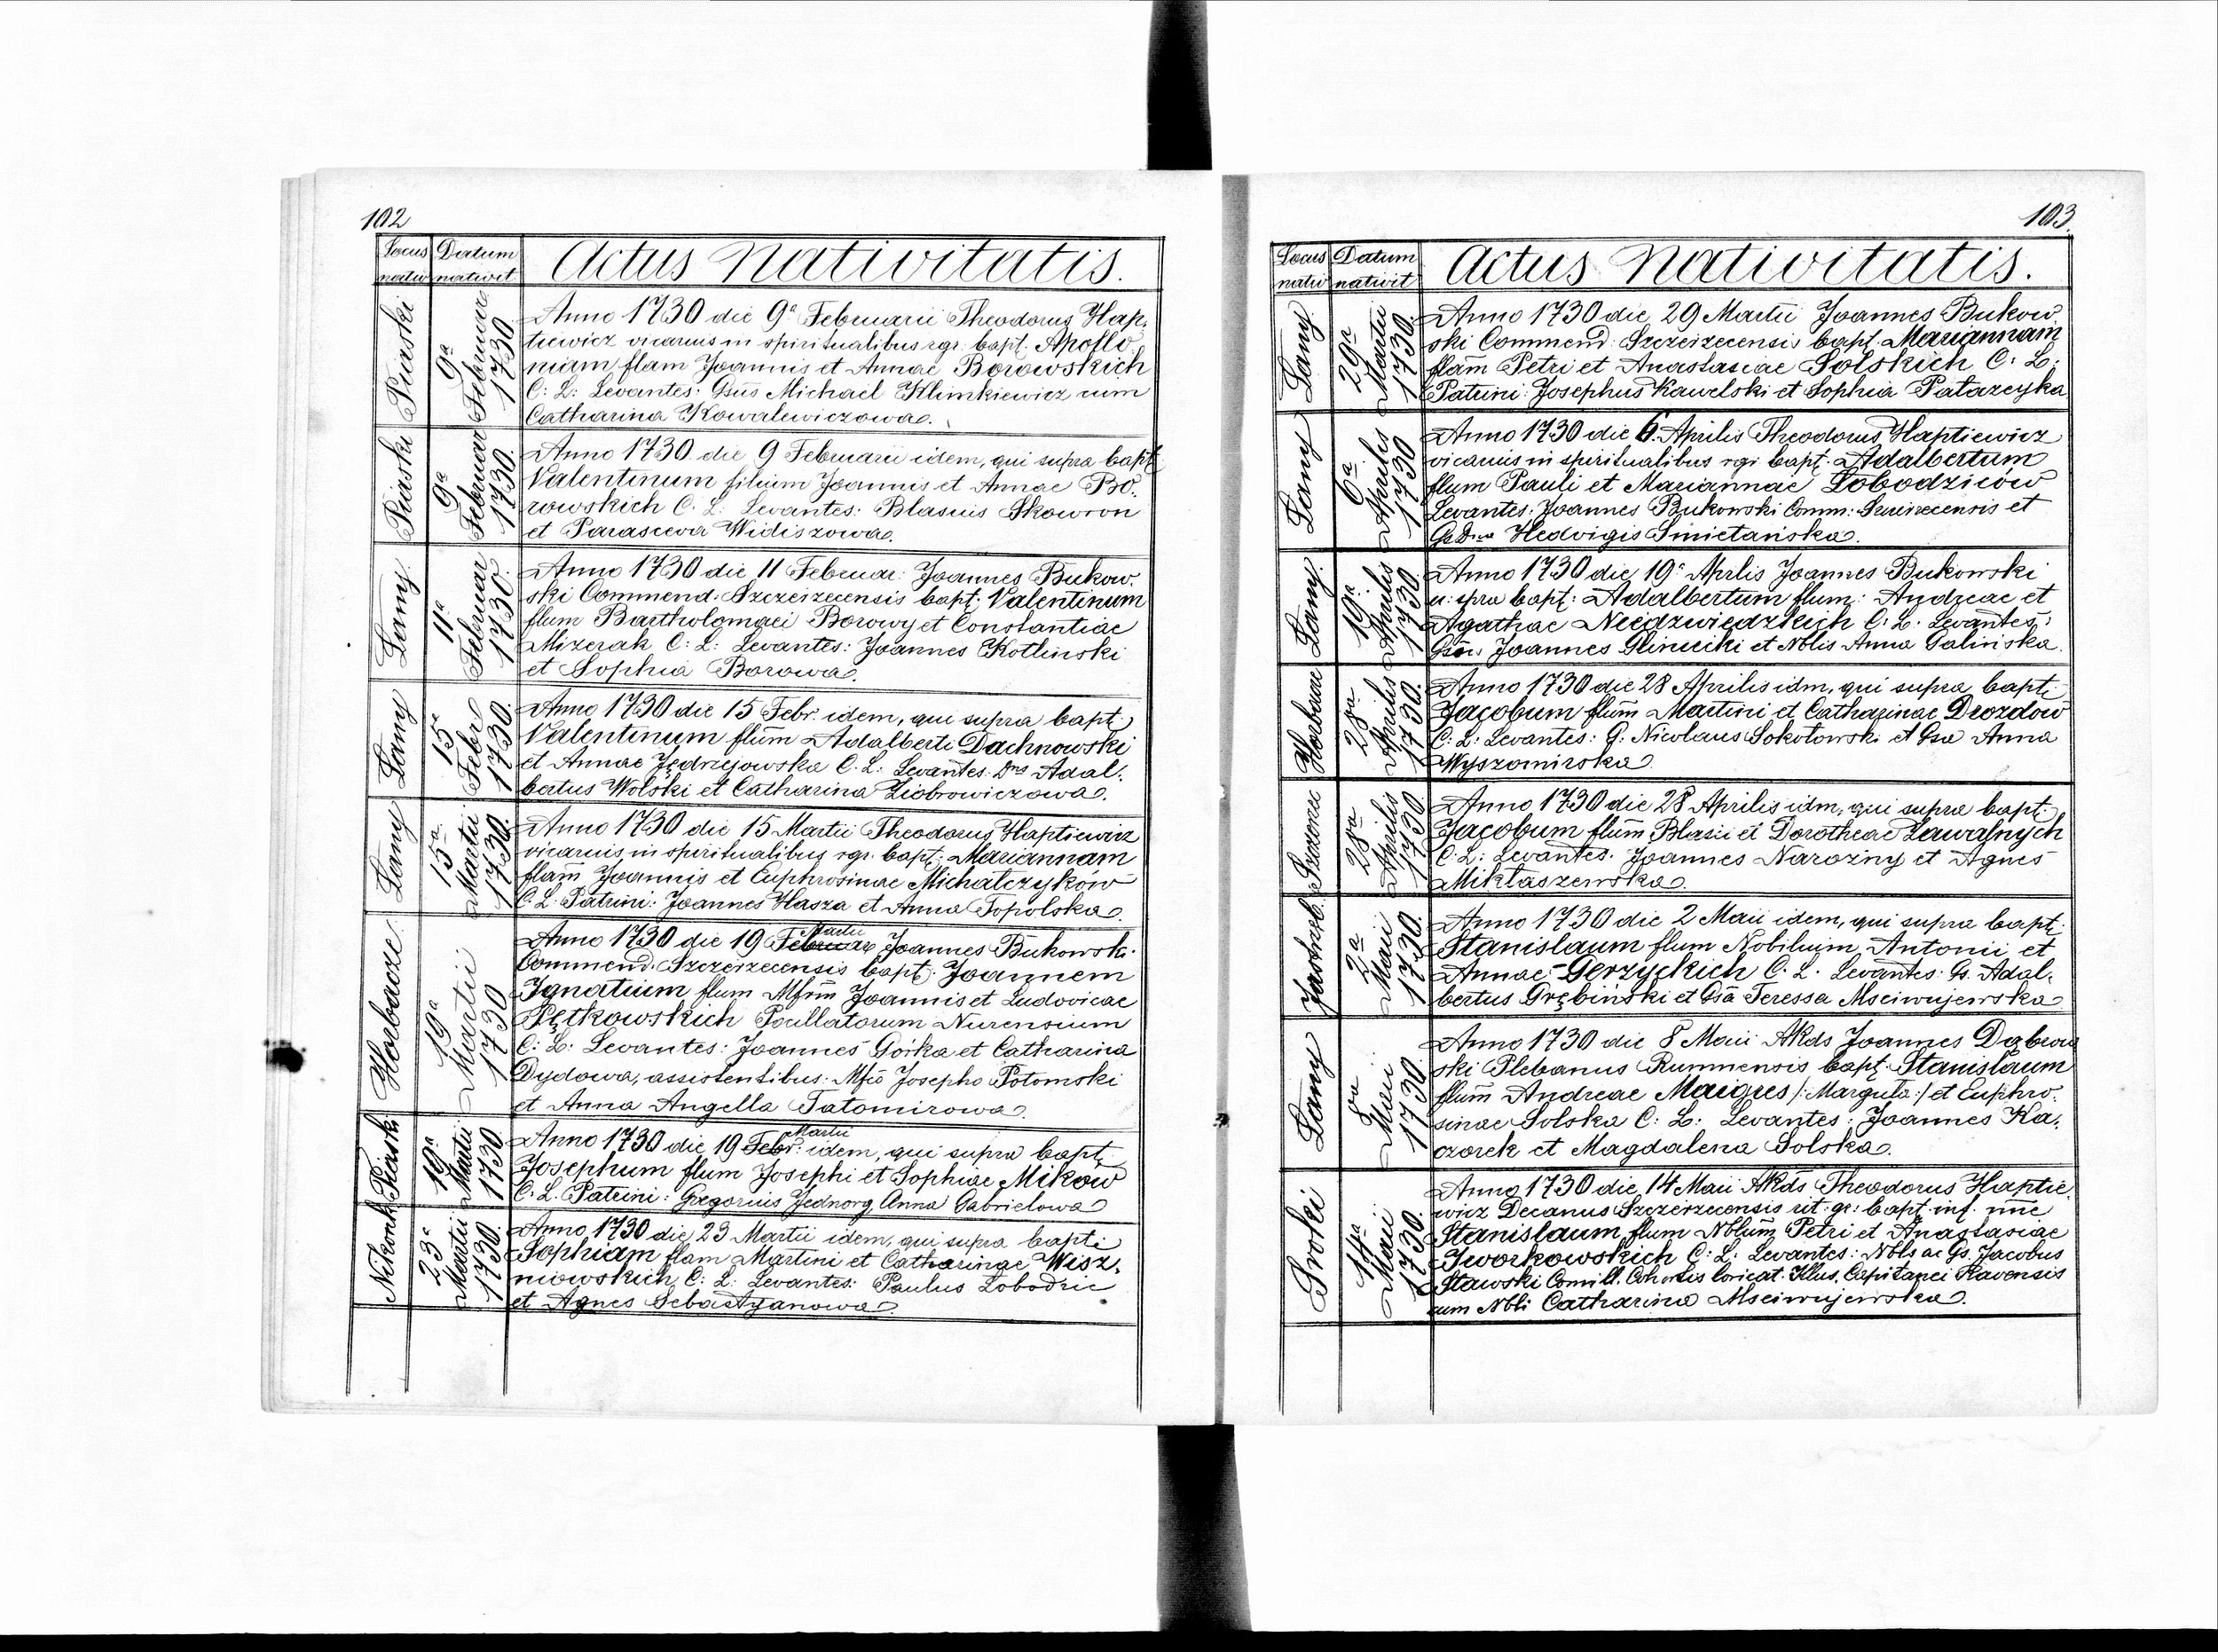 102
Locus nativ
Datum nativit
Actus Nativitatis.
Piaski
9ª Februar 1730
Anno 1730 die 9ª Februarii Theodorus Hap-
tiewicz vicarius in spiritualibus rgr. bapt. Apollo
niam flam Joannis et Annae Borowskich
C: L: Levantes: Gsus Michael Klimkiewicz cum
Catharina Kowalewiczowa.
Piaski
9ª Februar 1730
Anno 1730 die 9 Februarii idem, qui supra bapt.
Valentinum filium Joannis et Annae Bo-
rowskich C. L: Levantes: Blasius Skowron
et Parasceva Widiszowa.
Łany
11ª Februar 1730
Anno 1730 die 11 Februar: Joannes Bukow-
ski Commend: Szczeizecensis bapt: Valentinum
flum Bartholomaei Borowy et Constantiae
Mizerak C: L: Levantes: Joannes Kotlinski
et Sophia Borowa.
Łany
15ª Febr 1730
Anno 1730 die 15 Febr. idem, qui supra bapt:
Valentinum flūm Adalberti Dachnowski
et Annae Jędrzejowska C. L: Levantes: Dns Adal-
bertus Wolski et Catharina Ziobrowiczowa.
Łany
15ª Martii 1730
Anno 1730 die 15 Martii Theodorus Haptiewicz
vicarius in spiritualibus rgr. bapt: Mariannam
flam Joannis et Euphrosinae Michałczyków
C. L. Patrini: Joannes Hasza et Anna Topolska.
Horbacze
19ª Martii 1730
Martii
Anno 1730 die 19 Februar Joannes Bukowski
Commend: Szczeizecensis bapt: Joannem
Ignatium flum Mfrum Joannis et Ludovicae
Pętkowskich Pocillatorum Nurensium
C: L: Levantes: Joannes Górka et Catharina
Dydowa, assistentibus: Mfco Josepho Potomski
et Anna Angella Tatomirowa.
Piaski
19ª Martii 1730
Martii
Anno 1730 die 19 Febr: idem, qui supra bapt:
Josephum flum Josephi et Sophiae Mików
C. L. Patrini: Gregorius Jednorg Anna Gabrielowa
Nikonk
23ª Martii 1730
Anno 1730 die 23 Martii idem, qui supra bapti
Sophiam flam Martini et Catharinae Wisz-
niowskich, C: L: Levantes: Paulus Łobodzic
et Agnes Sebastyanowa.
103
Locus nativ
Datum nativit
Actus Nativitatis.
Łany
29ª Martii 1730
Anno 1730 die 29 Martii Joannes Bukow
ski Commend: Szczeizecensis bapt. Mariannam
flām Petri et Anastasiae Solskich C: L:
Patrini: Josephus Kawelski et Sophia Patazcyka
Łany
6ª Aprilis 1730
Anno 1730 die 6. Aprilis Theodorus Haptiewicz
vicarius in spiritualibus rgr bapt. Adalbertum
flum Pauli et Mariannae Łobodziców
Levantes: Joannes Bukowski Comm: et
Hedvigis Smietańska.
Łany
19ª Aprilis 1730
Anno 1730 die 19ª Aprlis Joannes Bukowski
u: spra bapt: Adalbertum flum: Andreae et
Agathae Niedzwiedzkich C: L: Levantes:
Joannes Gliniecki et Nblis Anna Galińska.
Horbacze
28ª Aprilis 1730
Anno 1730 die 28 Aprilis idm, qui supra bapt:
Jacobum flūm Martini et Catharinae Drozdów
C: L: Levantes: G: Nicolaus Sokołowski et Gsa Anna
Wyszomirska
28ª Aprilis 1730
Anno 1730 die 28 Aprilis idm, qui supra bapt:
Jacobum flūm Blasii et Dorotheae Zawalnych
C: L: Levantes. Joannes Narozny et Agnes
Mikłaszewska.
2ª Maii 1730
Anno 1730 die 2 Maii idem, qui supra bapt:
Stanislaum flum Nobilium Antonii et
Annae Gerzyckich C. L. Levantes: Gs. Adal-
bertus Grębiński et Gsā Teressa Msciwujewska
Łany
8va Maii 1730
Anno 1730 die 8 Maii Akds Joannes Dąbrow
ski Plebanus Rumnensis bapt. Stanislaum
flūm Andreae Maigres /: Marguta :/ et Euphro-
sinae Solska C: L: Levantes: Joannes Ka-
czorek et Magdalena Solska.
Brocki
14ª Maii 1730
Anno 1730 die 14 Maii Akds Theodorus Haptie
wicz Decanus Szczerzecensis rit: gr: bapt: inf.
Stanislaum flum Nblūm Petri et Anastasiae
Jworkowskich C: L: Levantes: Nbls ac Gs. Jacobus
Stawski Comill. Cohortis loricat. Illus. Capitanei Ravensis
cum Nbli Catharina Msciwujewska.